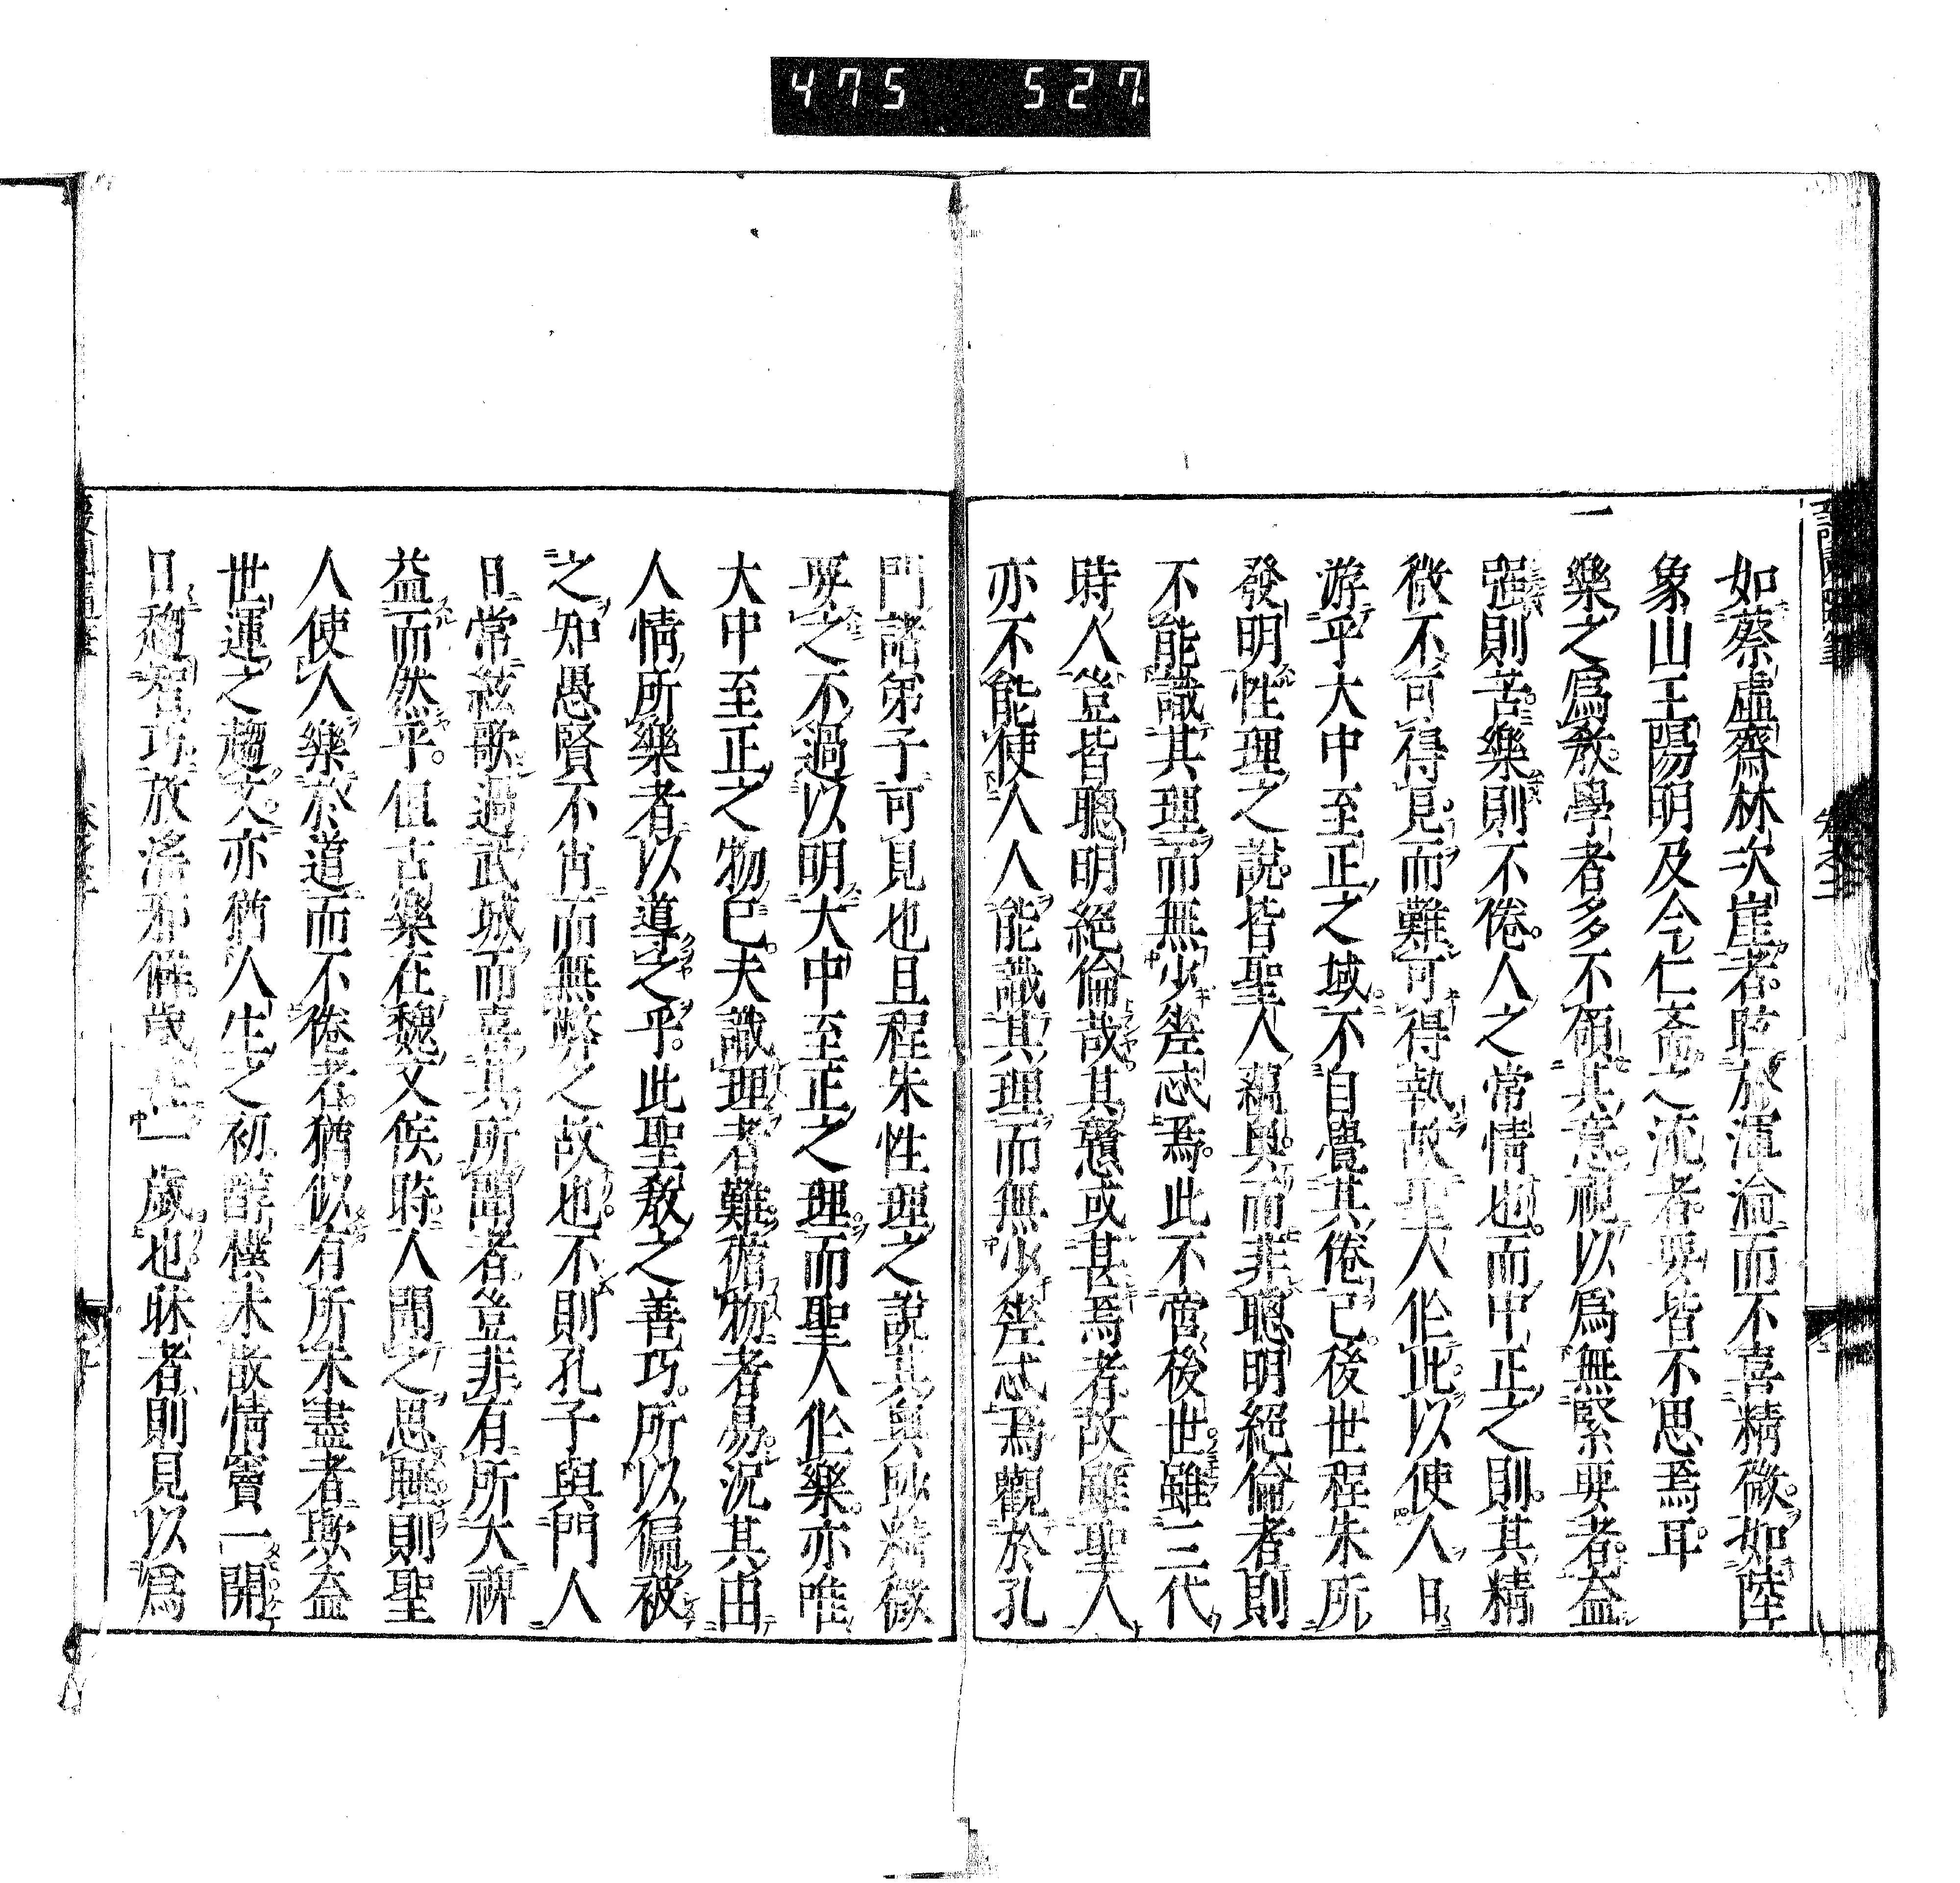 475 527
如蔡虛齋林次崖者眩於渾淪而不喜精微如陸
象山王陽明及今仁斎之流者要皆不思焉耳
一樂之爲教學者多不領其意視以爲無緊要者益
强則苦樂則不倦人之常情也而中正之則其精
微不可得見而難可得執故聖人作此以使人日
游乎大中至正之域不自覺其倦已後世程朱所
發明性理之說皆聖人蘊奧而非聰明絕倫者則
不能識其理而無少差忒焉此不啻後世雖三代
時人豈皆聰明絕倫哉其戇或甚焉者故雖聖人
亦不能使人人能識其理而無少差忒焉觀於孔
門諸弟子可見也且程朱性理之說其奧眇精微
要之不過以明大中至正之理而聖人作樂亦唯
大中至正之物已夫識理者難循物者易況其由
人情所樂者以導之乎此聖教之善巧所以偏被
之知愚賢不肖而無弊之故也不則孔子與門人
日常絃歌過武城而喜其所聞者豈非有所大裨
益而然乎但古樂在魏文侯時人聞之思睡則聖
人使人樂於道而不倦者猶似有所未盡者歟益
世運之趨文亦猶人生之初醇樸未散情竇一開
日趨智巧放滛邪僻歲一歲也昧者則見以爲